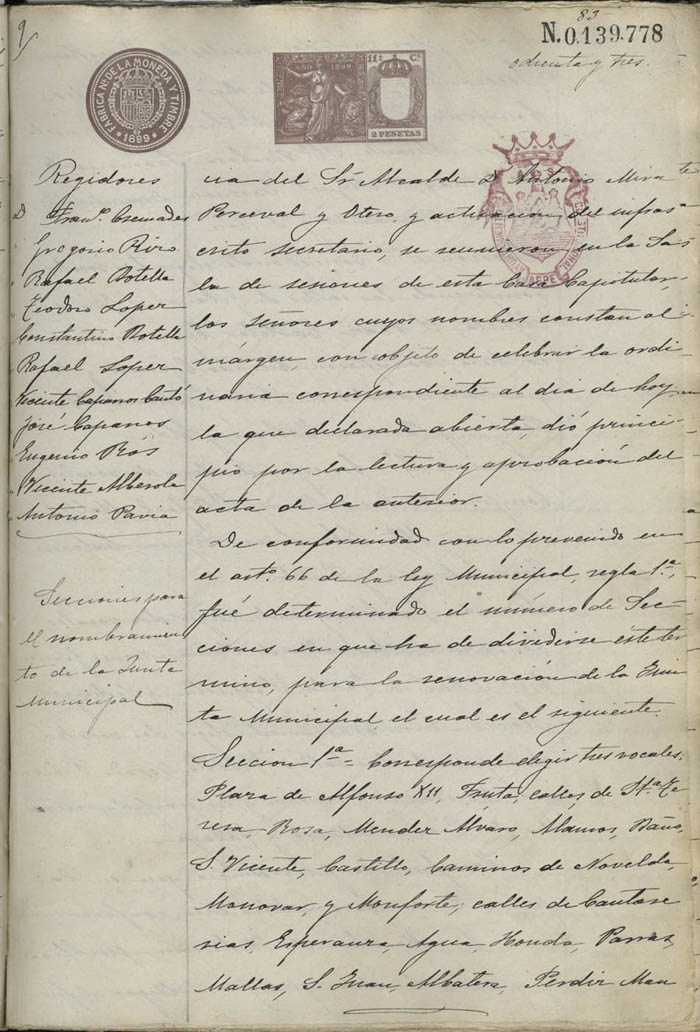 83
N.0,139.778
ochenta y tres.
FABRICA Nal. DE LA MONEDA Y TIMBRE
1899
AÑO 1899
11ª Cª
2 PESETAS
ASPE
Regidores
D. Franco. Cremades
Gregorio Rizo
" Rafael Botella
" Teodoro Lopez
Constantino Botella
" Rafael Lopez
" Vicente Caparros Cantó
" José Caparros
" Eugenio Bós
" Vicente Alberola
" Antonio Pavia
Secciones para
el nombramien
to de la Junta
Municipal
cia del Sr. Alcalde D. Antonio Mira
Perceval y Otero, y actuacion del infras
crito secretario, se reunieron en la Sa
la de sesiones de esta Casa Capitular,
los señores cuyos nombres constan al
márgen, con objeto de celebrar la ordi
naria correspondiente al dia de hoy,
la que declarada abierta, dió princi-
pio por la lectura y aprobacion del
acta de la anterior.
De conformidad con lo prevenido en
el arto. 66 de la ley Municipal, regla 1ª,
fué determinado el número de Sec
ciones en que ha de dividirse este tér
mino, para la renovacion de la Jun
ta Municipal el cual es el siguiente.
Seccion 1ª = Corresponde elegir tres vocales;
Plaza de Alfonso XII, Fruta, calles de Sta. Te
resa, Rosa, Mendez Alvaro, Alamos, Baño,
S. Vicente, Castillo, Caminos de Novelda,
Monovar, y Monforte; calles de Cantare
rias, Esperanza, Agua, Honda, Parras,
Mallas, S. Juan, Albatera, Perdir Man